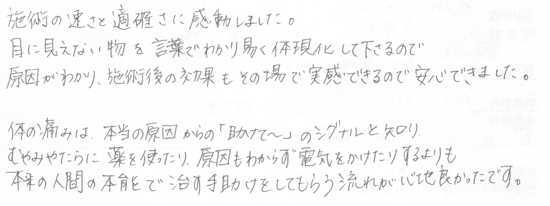 施術の速さと適確さに感動しました。
目に見えない物を言葉でわかり易く体現化して下さるので
原因がわかり、施術後の効果もその場で実感できるので安心できました。
体の痛みは、本当の原因からの「助けて〜」のシグナルと知り
むやみやたらに薬を使ったり、原因もわからず電気をかけたりするよりも
本来の人間の本能とで治す手助けをしてもらう流れが心地良かったです。